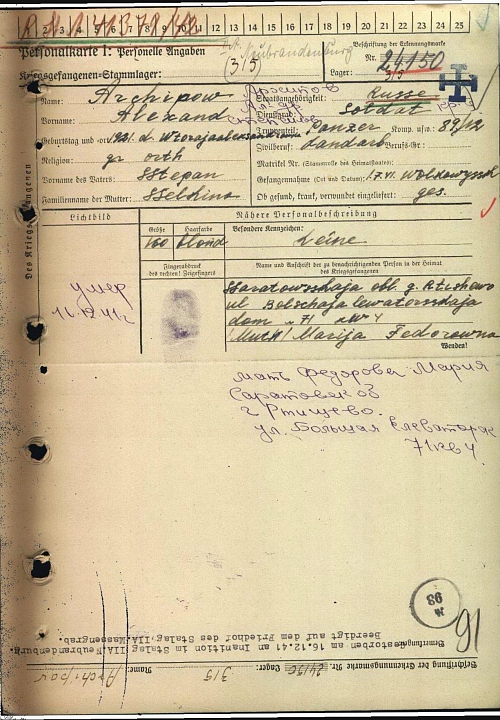 2 3 4 5 6 7 8 9 10 11 12 13 14 15 16 17 18 19 20 21 22 23 24 25
Personalkarte I: Personelle Angaben
Neubrandenburg
Beschriftung der Erkennungsmarke
(315)
Nr. 24150
Kriegsgefangenen-Stammlager:
Lager: 315
Name: Archipow
Staatsangehörigkeit: Russe
Vorname: Alexand
Dienstgrad: Soldat
Truppenteil: Panzer Komp. usw.: 89/12
Geburtstag und -ort: 1921. d. Wtorajaalexandrowna
Zivilberuf: Landarb. Berufs-Gr.:
Religion: gr orth
Matrikel Nr. (Stammrolle des Heimatstaates):
Vorname des Vaters: Stepan
Gefangennahme (Ort und Datum): 1.7.41 Wolkowyssk
Familienname der Mutter:
Ob gesund, krank, verwundet eingeliefert: ges.
Des Kriegsgefangenen
Lichtbild
Nähere Personalbeschreibung
Größe Haarfarbe Besondere Kennzeichen:
160 blond Keine
Fingerabdruck
des rechten! Zeigefingers
Name und Anschrift der zu benachrichtigenden Person in der Heimat
des Kriegsgefangenen
умер
16.12.41г
Saratowskaja obl. g. Rtischewo
ul Bolschaja lewatorskaja
dom "71 kw 4
Mutt! Marija Fedorowna
Wenden!
мать Федоровна Мария
Саратовск об
г Ртищево.
ул. Большая Елеваторск
71 кв 4
93
91
Bemerkungen: Gestorben am 16.12.41 an Inanition im Stalag IIA Neubrandenburg.
Beerdigt auf dem Friedhof des Stalag IIA Massengrab.
Beschriftung der Erkennungsmarke Nr. 24150 Lager: 315 Name: Archipow